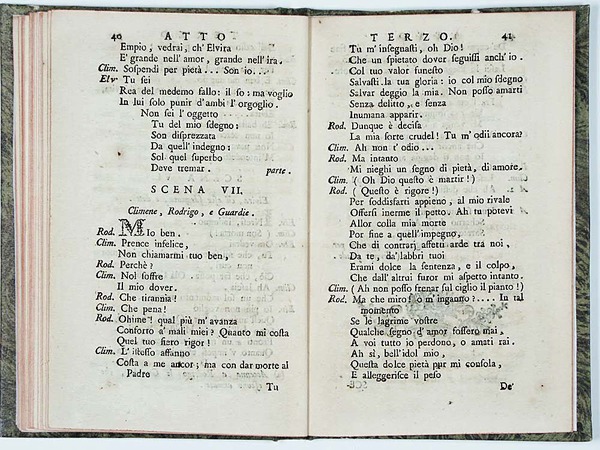 40 ATTO
Empio, vedrai, ch' Elvira
E' grande nell' amor, grande nell' ira.
Clim. Sospendi per pietà... Son io...
Elv. Tu sei
Rea del medemo fallo: il so: ma voglio
In lui solo punir d'ambi l' orgoglio.
Non sei l' oggetto
Tu del mio sdegno:
Son disprezzata
Da quell' indegno:
Sol quel superbo
Deve tremar. parte.
SCENA VII.
Climene, Rodrigo, e Guardie.
Rod. MIo ben.
Clim. Prence infelice,
Non chiamarmi tuo ben,
Rod. Perchè?
Clim. Nol soffre
Il mio dover.
Rod. Che tirannia!
Clim. Che pena!
Rod. Ohime! qual più m' avanza
Conforto a' mali miei? Quanto mi costa
Quel tuo fiero rigor!
Clim. L' istesso affanno
Costa a me ancor; ma con dar morte al
Padre
Tu
TERZO. 41
Tu m' insegnasti, oh Dio!
Che un spietato dover seguissi anch' io.
Col tuo valor funesto
Salvasti la tua gloria: io col mio sdegno
Salvar deggio la mia. Non posso amarti
Senza delitto, e senza
Inumana apparir.
Rod. Dunque è decisa
La mia sorte crudel! Tu m' odj ancora?
Clim. Ah non t' odio...
Rod. Ma intanto
Mi nieghi un segno di pietà, di amore.
Clim. ( Oh Dio questo è martir! )
Rod. ( Questo è rigore! )
Per soddisfarti appieno, al mio rivale
Offersi inerme il petto. Ah tu potevi
Allor colla mia morte
Por fine a quell' impegno,
Che di contrarj affetti arde tra noi,
Da te, da' labbri tuoi
Erami dolce la sentenza, e il colpo,
Che dall' altrui furor mi aspetto intanto.
Clim. ( Ah non posso frenar sul ciglio il pianto! )
Rod. Ma che miro! o m' inganno?.... In tal
momento
Se le lagrime vostre
Qualche segno d' amor fossero mai,
A voi tutto io perdono, o amati rai.
Ah sì, bell' idol mio,
Questa dolce pietà pur mi consola,
E alleggerisce il peso
De'